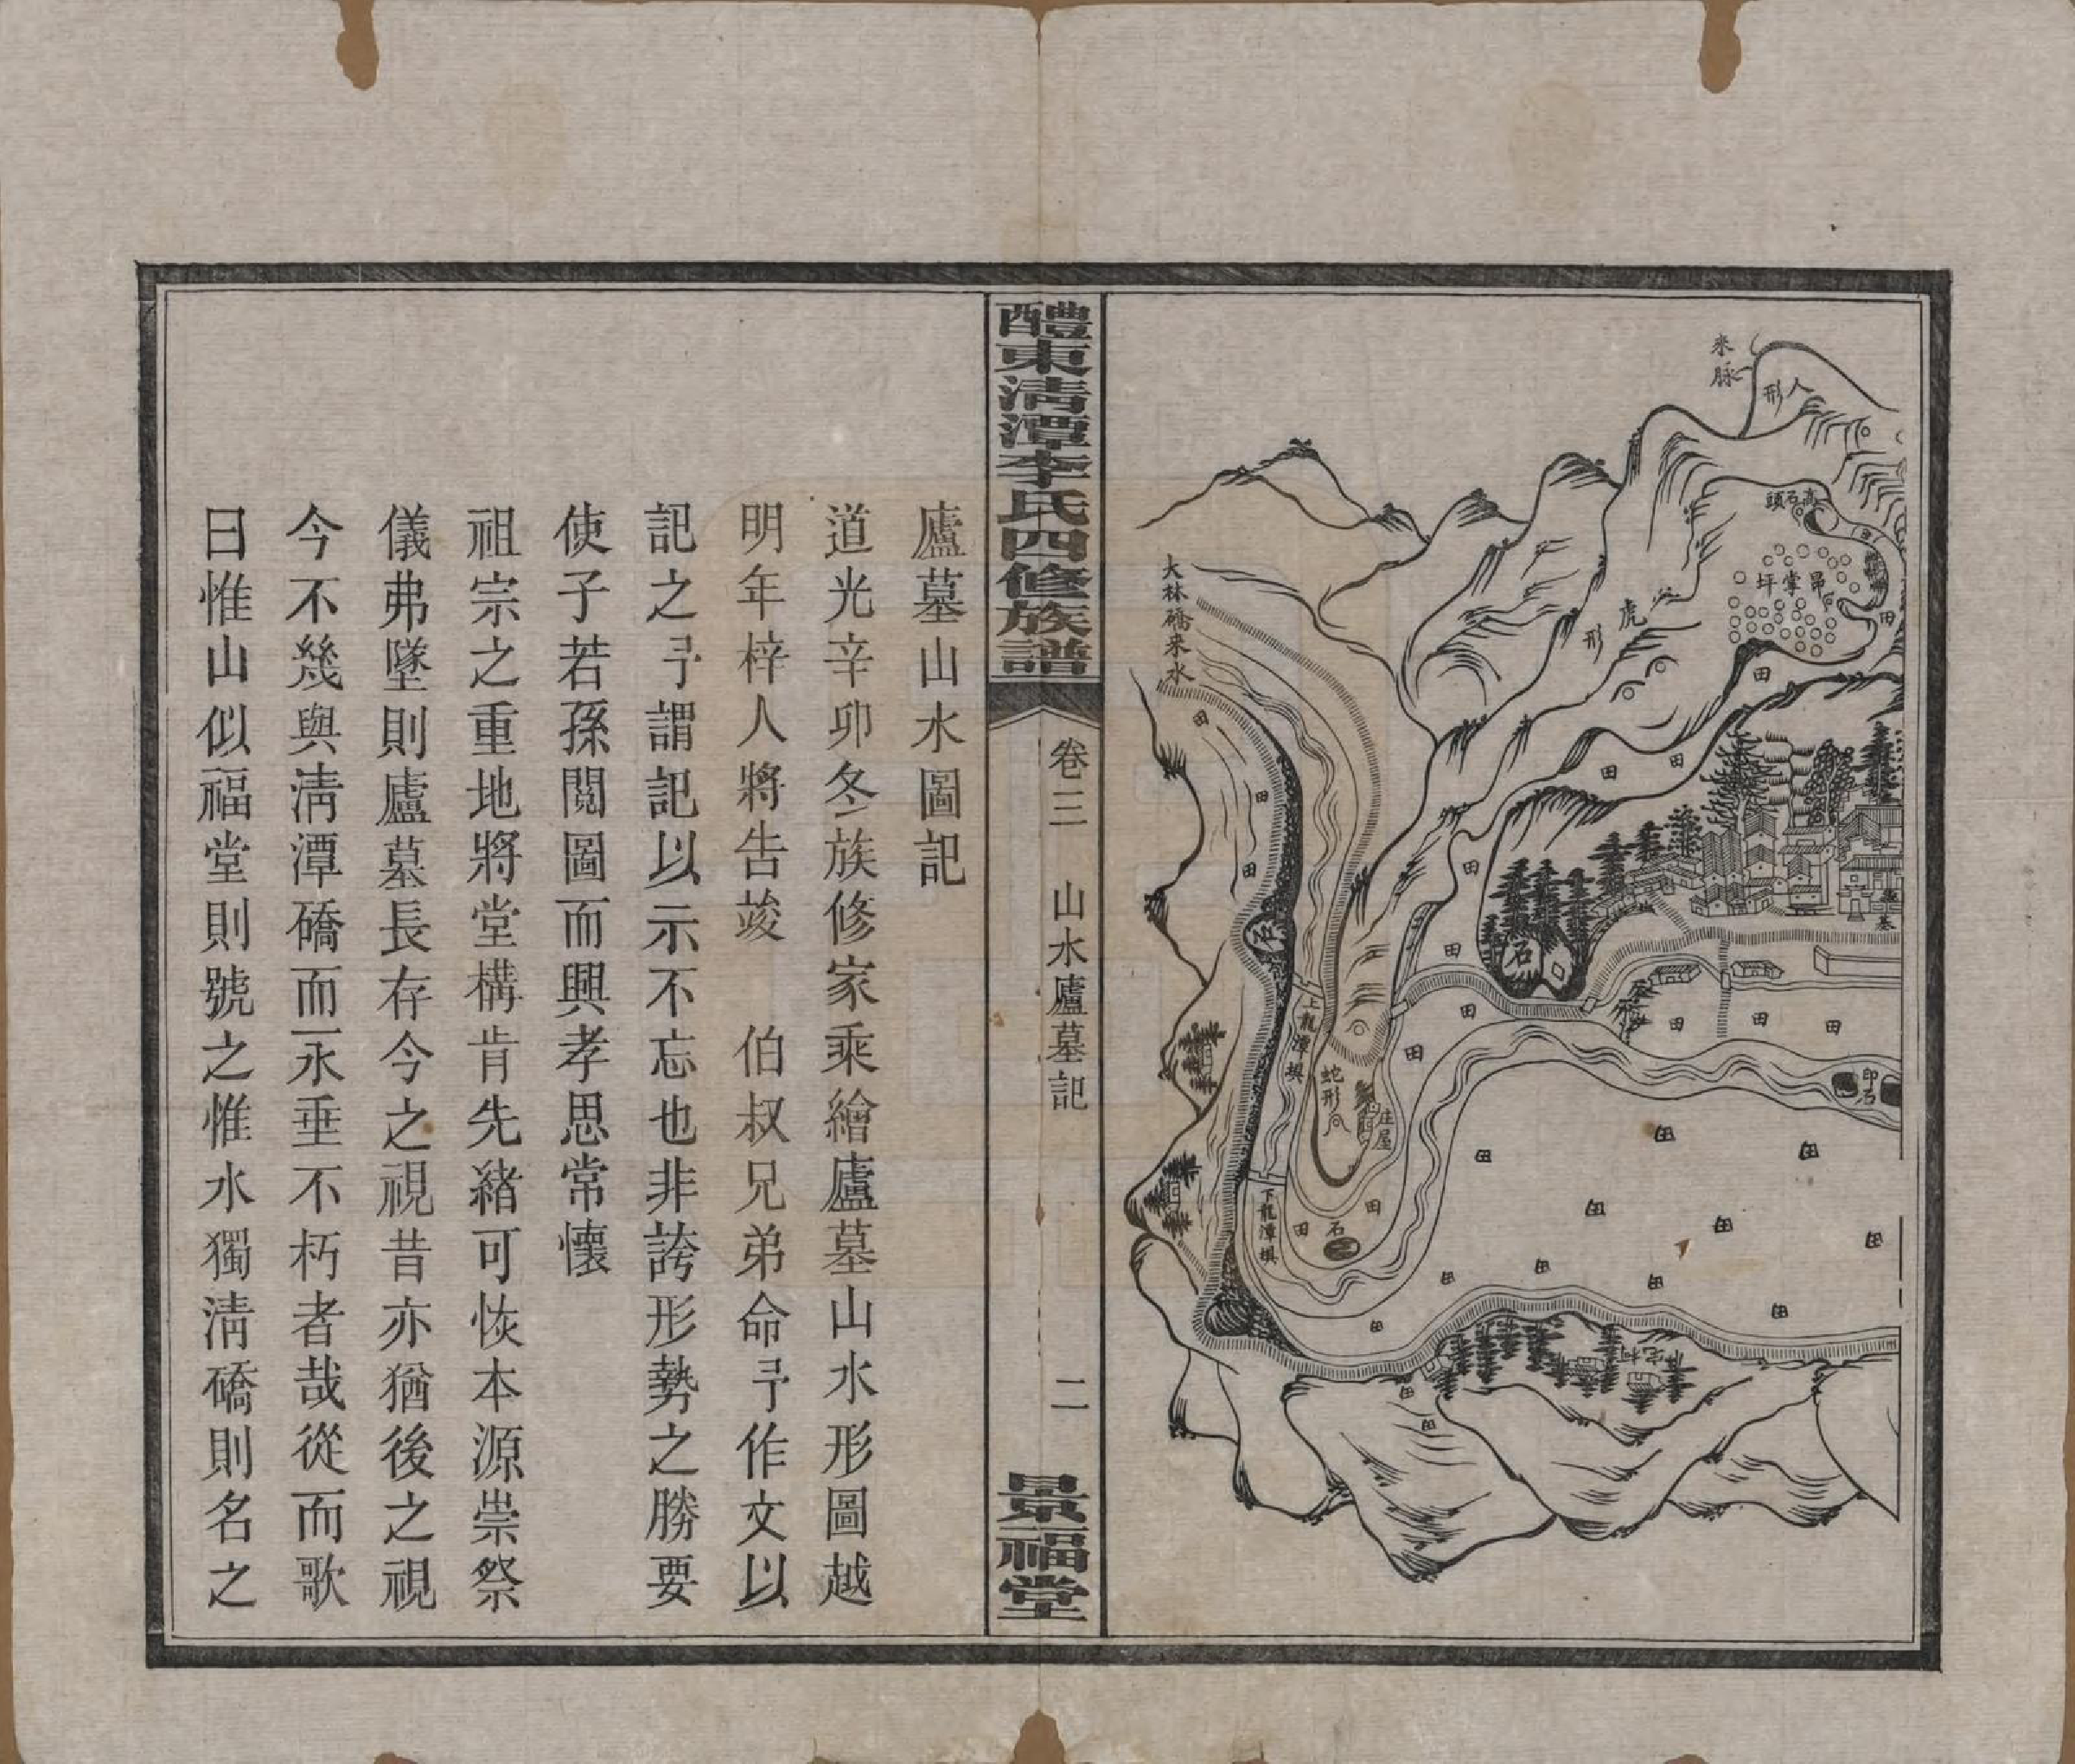 來脉
人形
高石頭
昂掌坪
虎形
田
大林礄来水
田
田
田
石
上龍潭垻
蛇形
庄屋
下龍潭垻
石
印石
田
醴東淸潭李氏四修族譜
卷三
山水廬墓記
二
景福堂
廬墓山水圖記
道光辛卯冬族修家乘繪廬墓山水形圖越
明年梓人將告竣　伯叔兄弟命予作文以
記之予謂記以示不忘也非誇形勢之勝要
使子若孫閱圖而興孝思常懷
祖宗之重地將堂構肯先緒可恢本源崇祭
儀弗墜則廬墓長存今之視昔亦猶後之視
今不幾與淸潭礄而永垂不朽者哉從而歌
曰惟山似福堂則號之惟水獨淸礄則名之